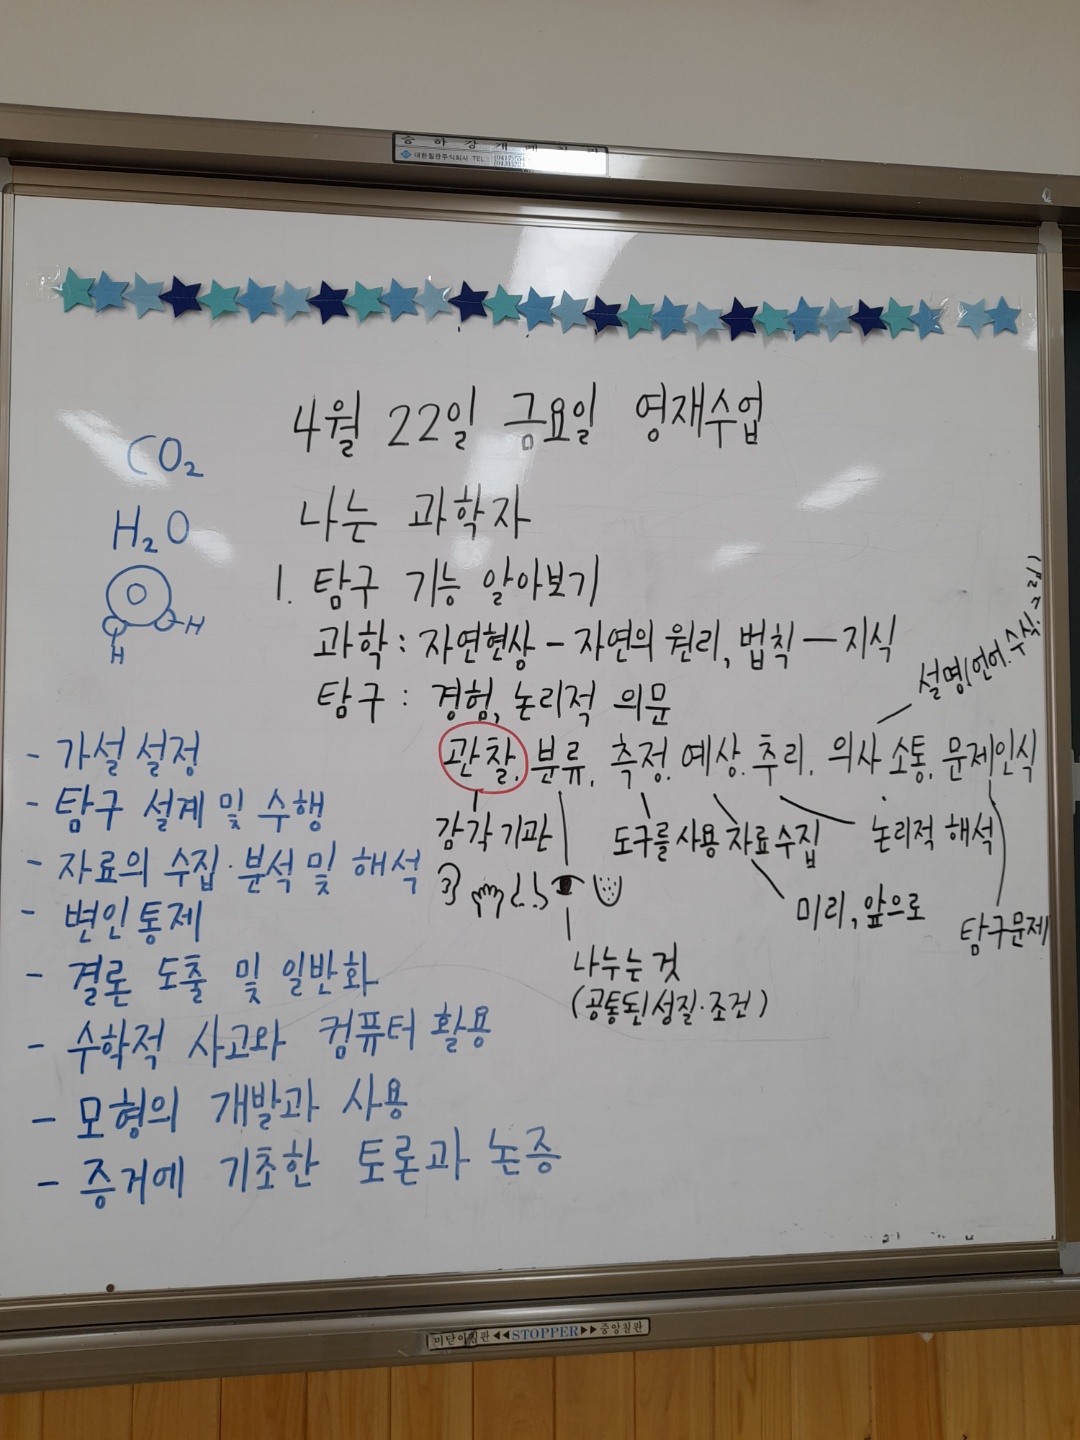 승하강개폐칠판
대한칠판주식회사 TEL:
4월 22일 금요일 영재수업
CO₂
나는 과학자
H₂O
1. 탐구 기능 알아보기
O
H
H
과학 : 자연현상 - 자연의 원리, 법칙 - 지식
탐구 : 경험, 논리적 의문
설명(언어. 수식.
관찰. 분류. 측정. 예상. 추리. 의사소통. 문제인식
감각기관
도구를 사용
자료수집
논리적 해석
미리, 앞으로
탐구문제
나누는 것
(공통된 성질·조건)
- 가설 설정
- 탐구 설계 및 수행
- 자료의 수집·분석 및 해석
- 변인통제
- 결론 도출 및 일반화
- 수학적 사고와 컴퓨터 활용
- 모형의 개발과 사용
- 증거에 기초한 토론과 논증
미닫이칠판 ◀◀STOPPER▶▶ 중앙칠판